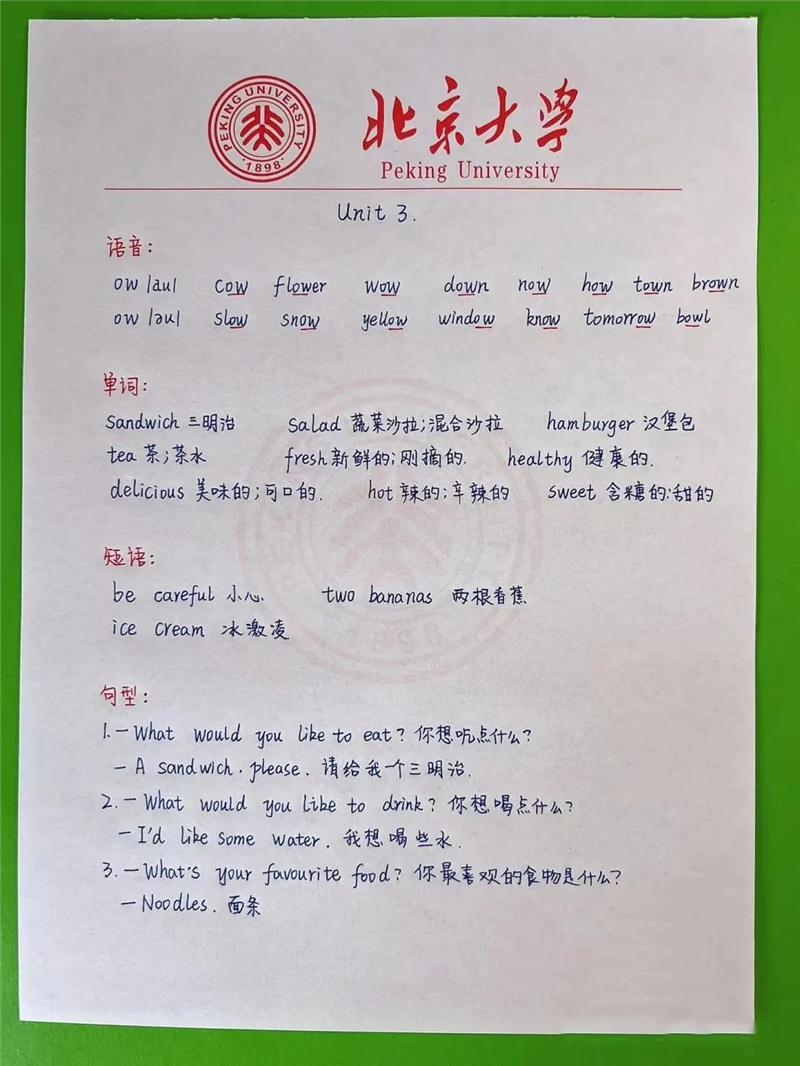 PEKING UNIVERSITY
·1898·
北京大学
Peking University
Unit 3.
语音:
ow /au/ cow flower wow down now how town brown
ow /əu/ slow snow yellow window know tomorrow bowl
单词:
sandwich 三明治 salad 蔬菜沙拉;混合沙拉 hamburger 汉堡包
tea 茶;茶水 fresh 新鲜的;刚摘的. healthy 健康的.
delicious 美味的;可口的. hot 辣的;辛辣的 sweet 含糖的;甜的
短语:
be careful 小心 two bananas 两根香蕉
ice cream 冰激凌
句型:
1. — What would you like to eat? 你想吃点什么?
— A sandwich, please. 请给我一个三明治.
2. — What would you like to drink? 你想喝点什么?
— I'd like some water. 我想喝些水.
3. — What's your favourite food? 你最喜欢的食物是什么?
— Noodles. 面条